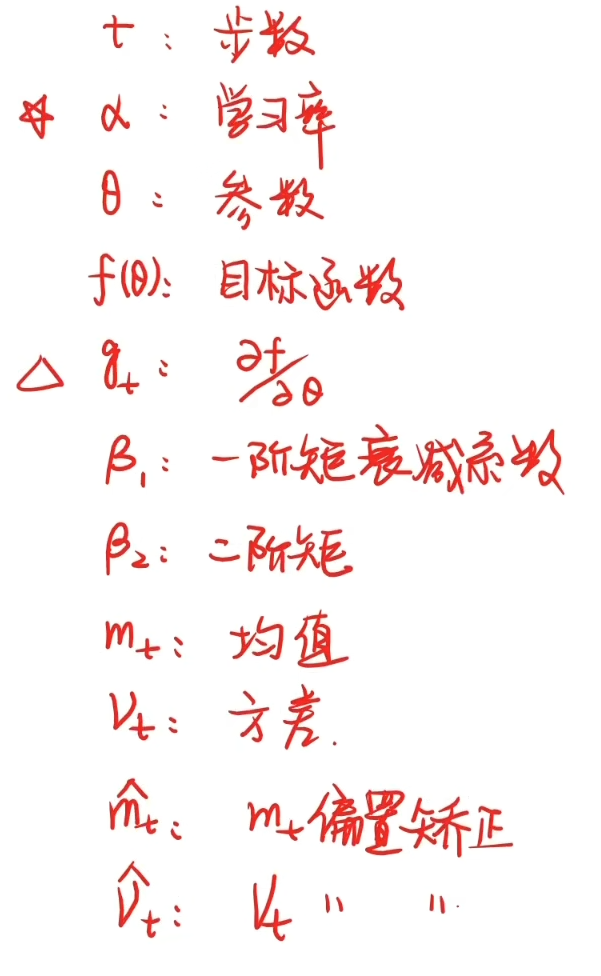 t: 步数
☆ α: 学习率
θ: 参数
f(θ): 目标函数
△ g_t: ∂f/∂θ
β₁: 一阶矩衰减系数
β₂: 二阶矩
m_t: 均值
V_t: 方差.
m̂_t: m_t偏置矫正
V̂_t: V_t " "